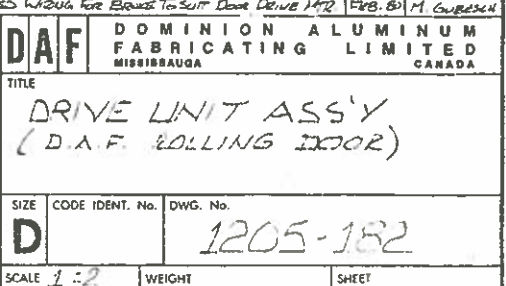 WIRING FOR BRAKE TO SUIT DOOR DRIVE MTR. FEB. 80 M. GUBESCH
DAF DOMINION ALUMINUM
FABRICATING LIMITED
MISSISSAUGA CANADA
TITLE
DRIVE UNIT ASS'Y
(D.A.F. ROLLING DOOR)
SIZE CODE IDENT. No. DWG. No.
D 1205-182
SCALE 1:2 WEIGHT SHEET